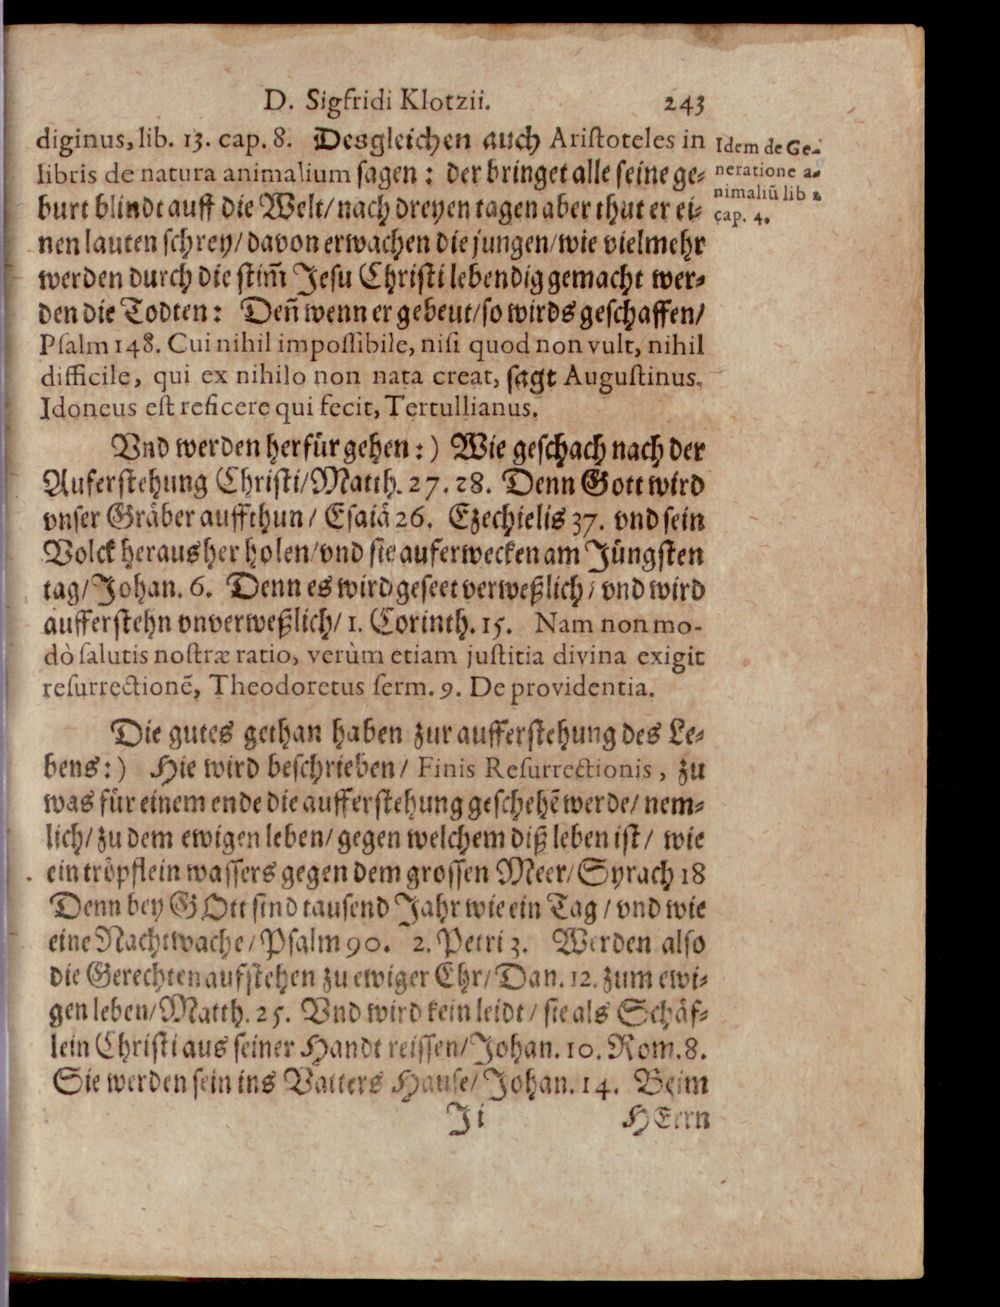 D. Sigfridi Klotzii. 243
diginus, lib. 13. cap. 8. Desgleichen auch Aristoteles in
libris de natura animalium sagen: der bringet alle seine ge-
burt blindt auff die Welt/ nach dreyen tagen aber thut er ei-
nen lauten schrey/ davon erwachen die jungen/ wie vielmehr
werden durch die stim̃ Jesu Christi lebendig gemacht wer-
den die Todten: Deñ wenn er gebeut/ so wirds geschaffen/
Psalm 148. Cui nihil impossibile, nisi quod non vult, nihil
difficile, qui ex nihilo non nata creat, sagt Augustinus.
Idoneus est reficere qui fecit, Tertullianus.
Idem de Ge-
neratione a-
nimaliũ lib 2
cap. 4.
Vnd werden herfür gehen:) Wie geschach nach der
Auferstehung Christi/ Matth. 27. 28. Denn Gott wird
vnser Gräber auffthun/ Esaiä 26. Ezechielis 37. vnd sein
Volck heraus her holen/ vnd sie auferwecken am Jüngsten
tag/ Johan. 6. Denn es wird geseet verweßlich/ vnd wird
aufferstehn vnverweßlich/ 1. Corinth. 15. Nam non mo-
dò salutis nostræ ratio, verùm etiam justitia divina exigit
resurrectionẽ, Theodoretus serm. 9. De providentia.
Die gutes gethan haben zur aufferstehung des Le-
bens:) Hie wird beschrieben/ Finis Resurrectionis, zu
was für einem ende die aufferstehung geschehẽ werde/ nem-
lich/ zu dem ewigen leben/ gegen welchem diß leben ist/ wie
ein tröpflein wassers gegen dem grossen Meer/ Syrach 18
Denn bey GOtt sind tausend Jahr wie ein Tag/ vnd wie
eine Nachtwache/ Psalm 90. 2. Petri 3. Werden also
die Gerechten aufstehen zu ewiger Ehr/ Dan. 12. zum ewi-
gen leben/ Matth. 25. Vnd wird kein leidt/ sie als Schäf-
lein Christi aus seiner Handt reissen/ Johan. 10. Rom. 8.
Sie werden sein ins Vatters Hause/ Johan. 14. Beim
Ji HErrn